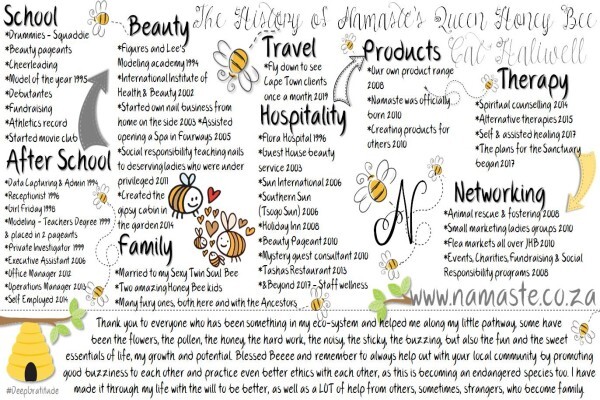 The History of Namaste's Queen Honey Bee
Cat Halliwell
School
*Drummies - Squaddie
*Beauty pageants
*Cheerleading
*Model of the year 1995
*Debutantes
*Fundraising
*Athletics record
*Started movie club
After School
*Data Capturing & Admin 1994
*Receptionist 1996
*Girl Friday 1998
*Modeling - Teachers Degree 1999
& placed in 2 pageants
*Private Investigator 1999
*Executive Assistant 2006
*Office Manager 2012
*Operations Manager 2013
*Self Employed 2014
Beauty
*Figures and Lee's
Modeling academy 1994
*International Institute of
Health & Beauty 2002
*Started own nail business from
home on the side 2003 *Assisted
opening a Spa in Fourways 2005
*Social responsibility teaching nails
to deserving ladies who were under
privileged 2011
*Created the
gipsy cabin in
the garden 2014
Family
*Married to my Sexy Twin Soul Bee
*Two amazing Honey Bee kids
*Many furry ones, both here and with the Ancestors
Travel
*Fly down to see
Cape Town clients
once a month 2019
Hospitality
*Flora Hospital 1996
*Guest House beauty
service 2003
*Sun International 2006
*Southern Sun
(Tsogo Sun) 2006
*Holiday Inn 2008
*Beauty Pageant 2010
*Mystery guest consultant 2010
*Tashas Restaurant 2013
*&Beyond 2017 - Staff wellness
Products
*Our own product range
2008
*Namaste was officially
born 2010
*Creating products for
others 2010
Therapy
*Spiritual counselling 2014
*Alternative therapies 2015
*Self & assisted healing 2017
*The plans for the Sanctuary
began 2017
N
Networking
*Animal rescue & fostering 2008
*Small marketing ladies groups 2010
*Flea markets all over JHB 2010
*Events, Charities, Fundraising & Social
Responsibility programs 2008
www.namaste.co.za
Thank you to everyone who has been something in my eco-system and helped me along my little pathway, some have
been the flowers, the pollen, the honey, the hard work, the noisy, the sticky, the buzzing, but also the fun and the sweet
essentials of life, my growth and potential. Blessed Beeee and remember to always help out with your local community by promoting
good buzziness to each other and practice even better ethics with each other, as this is becoming an endangered species too. I have
made it through my life with the will to be better, as well as a LOT of help from others, sometimes, strangers, who became family.
#DeepGratitude